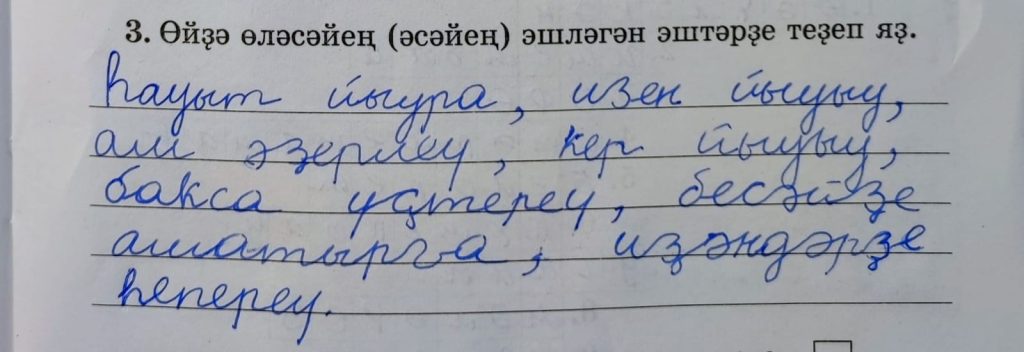 3. Өйҙә өләсәйең (әсәйең) эшләгән эштәрҙе теҙеп яҙ.
Һауыт йыура, изен йыуыу,
аш әҙерләү, кер йыуыу,
бакса үҫтереү, бесәйҙе
ашатырға, иҙәндәрҙе
һепереү.